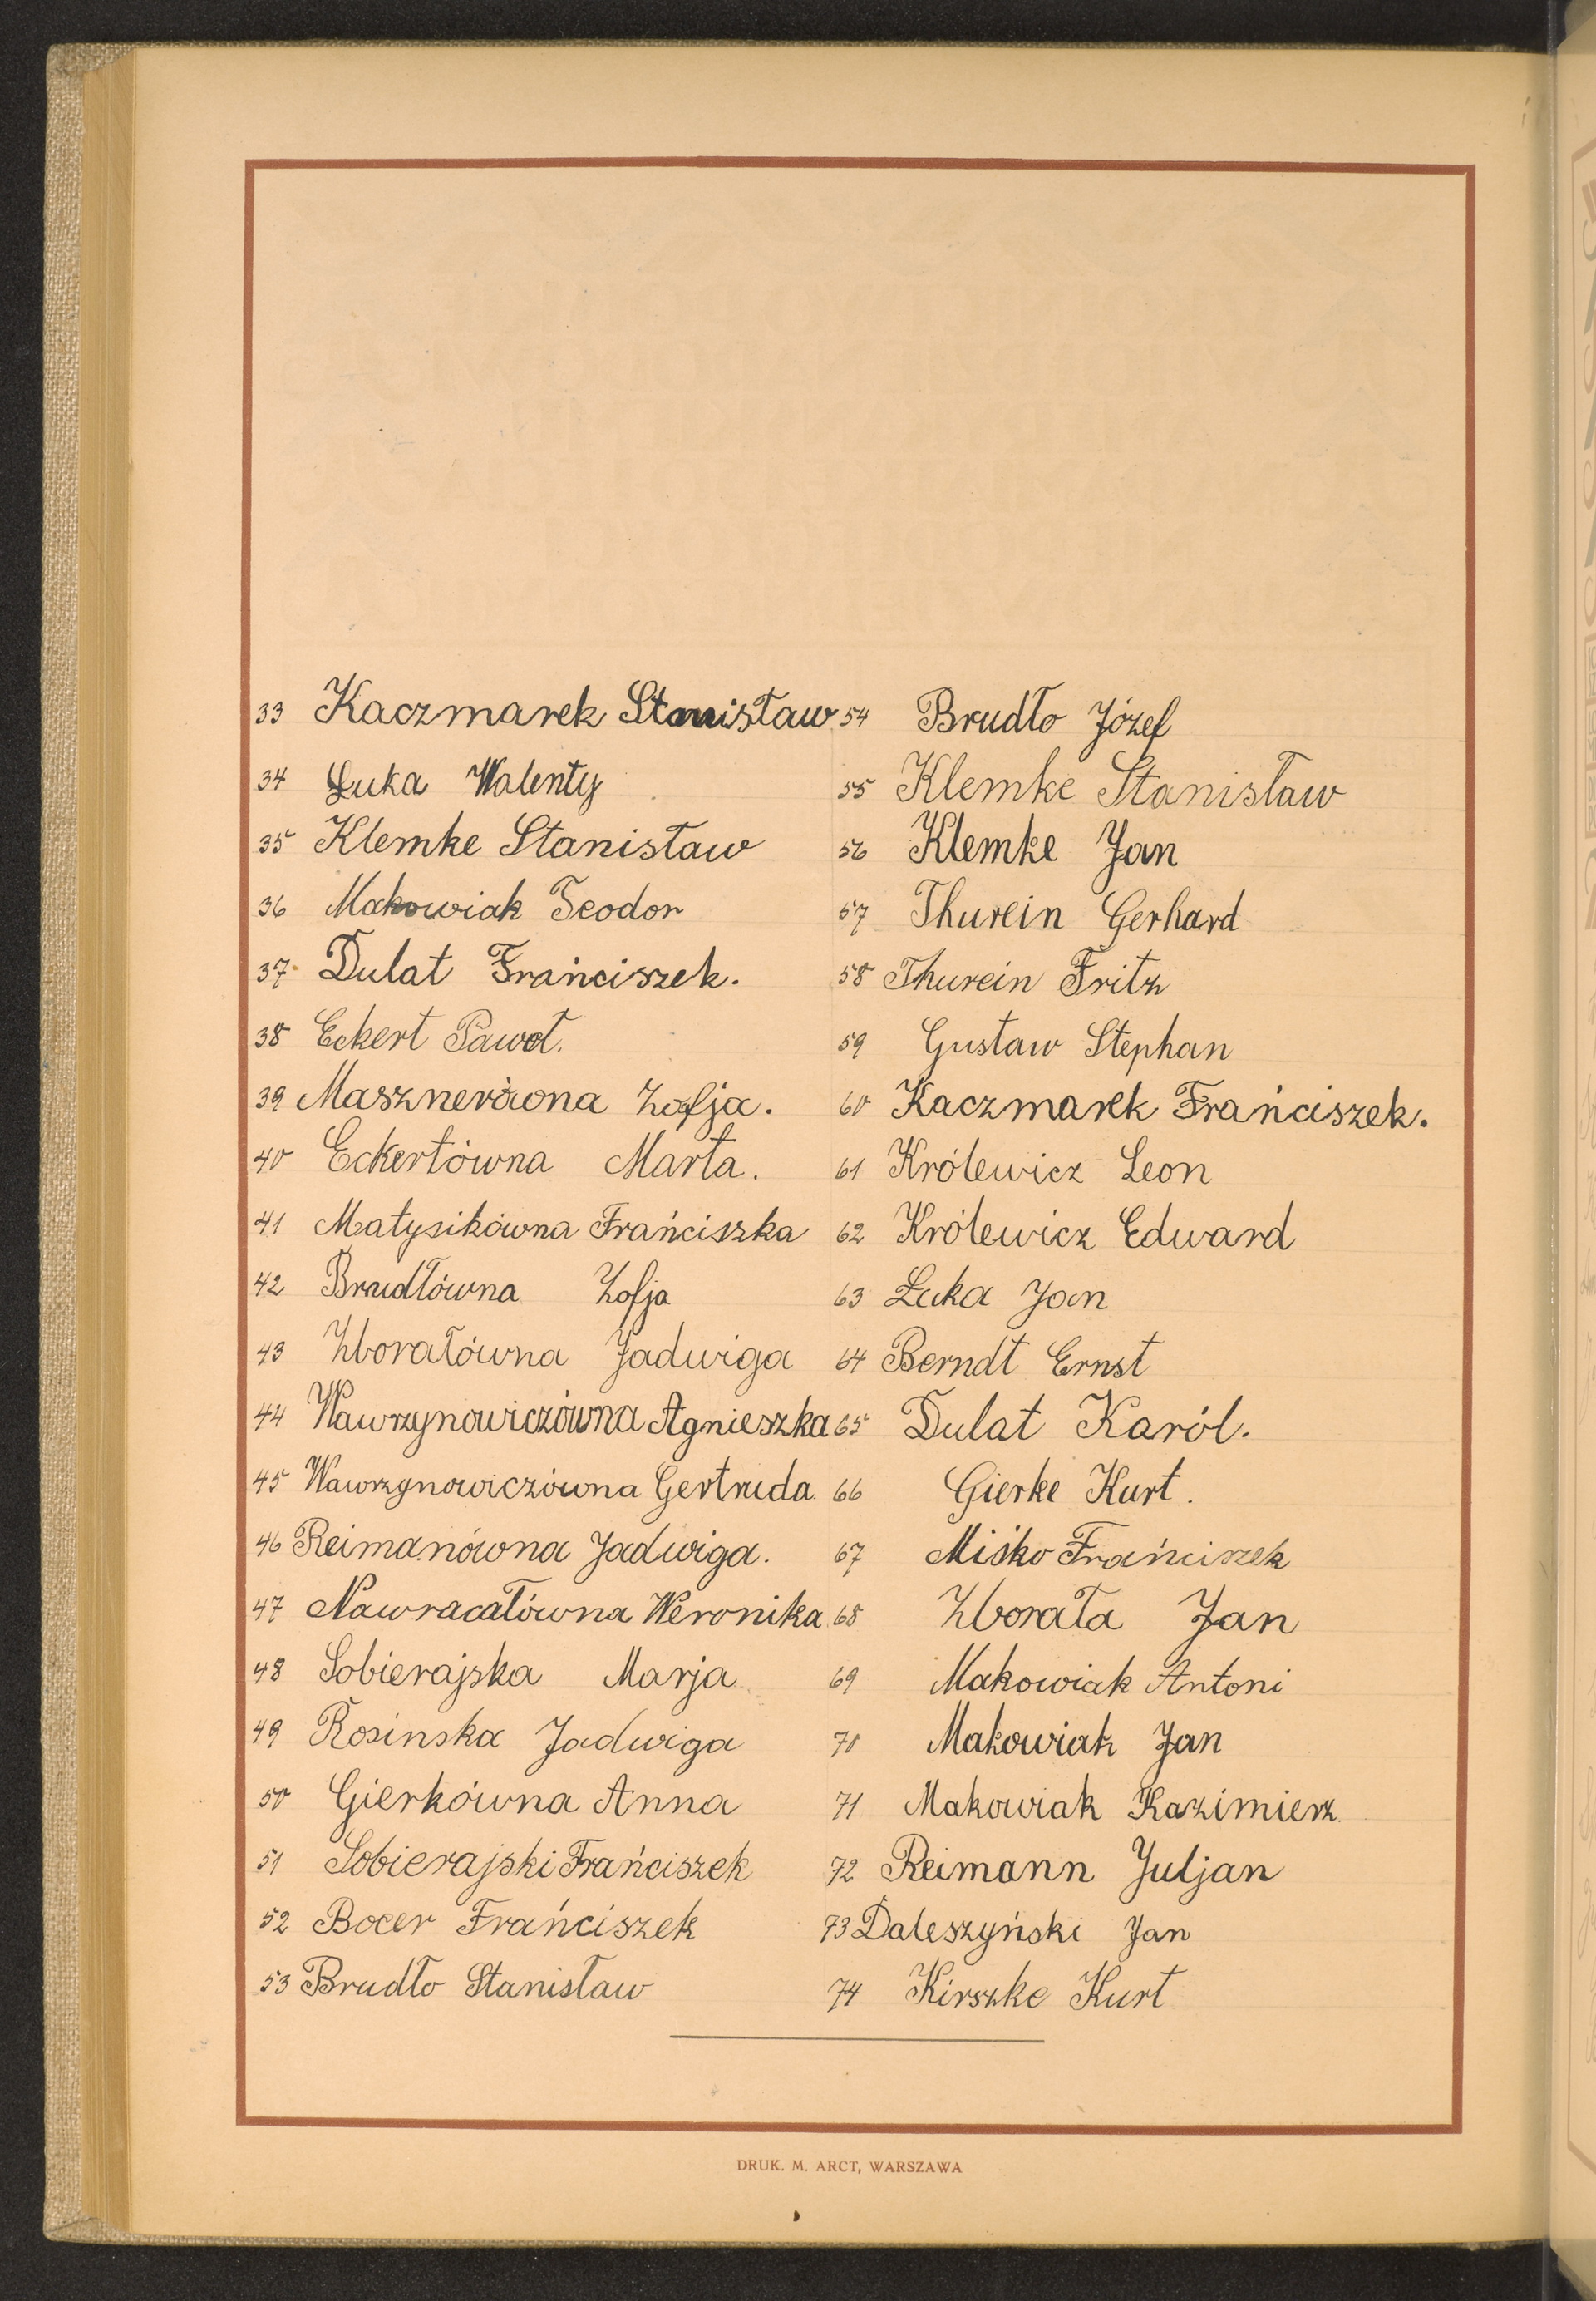 33 Kaczmarek Stanisław
34 Łuka Walenty
35 Klemke Stanisław
36 Makowiak Teodor
37 Dulat Frańciszek.
38 Eckert Paweł.
39 Masznerówna Zofja.
40 Eckertówna Marta.
41 Matysikówna Frańciszka
42 Brudłówna Zofja
43 Zborałówna Jadwiga
44 Wawrzynowiczówna Agnieszka
45 Wawrzynowiczówna Gertruda.
46 Reimanówna Jadwiga.
47 Nawracałówna Weronika
48 Sobierajska Marja
49 Rosinska Jadwiga
50 Gierkówna Anna
51 Sobierajski Frańciszek
52 Bocer Frańciszek
53 Brudło Stanisław
54 Brudło Józef
55 Klemke Stanisław
56 Klemke Jan
57 Thurein Gerhard
58 Thurein Fritz
59 Gustaw Stephan
60 Kaczmarek Frańciszek.
61 Królewicz Leon
62 Królewicz Edward
63 Łuka Jan
64 Berndt Ernst
65 Dulat Karól.
66 Gierke Kurt.
67 Miśko Frańciszek
68 Zborała Jan
69 Makowiak Antoni
70 Makowiak Jan
71 Makowiak Kazimierz.
72 Reimann Juljan
73 Daleszyński Jan
74 Kirszke Kurt
DRUK. M. ARCT, WARSZAWA